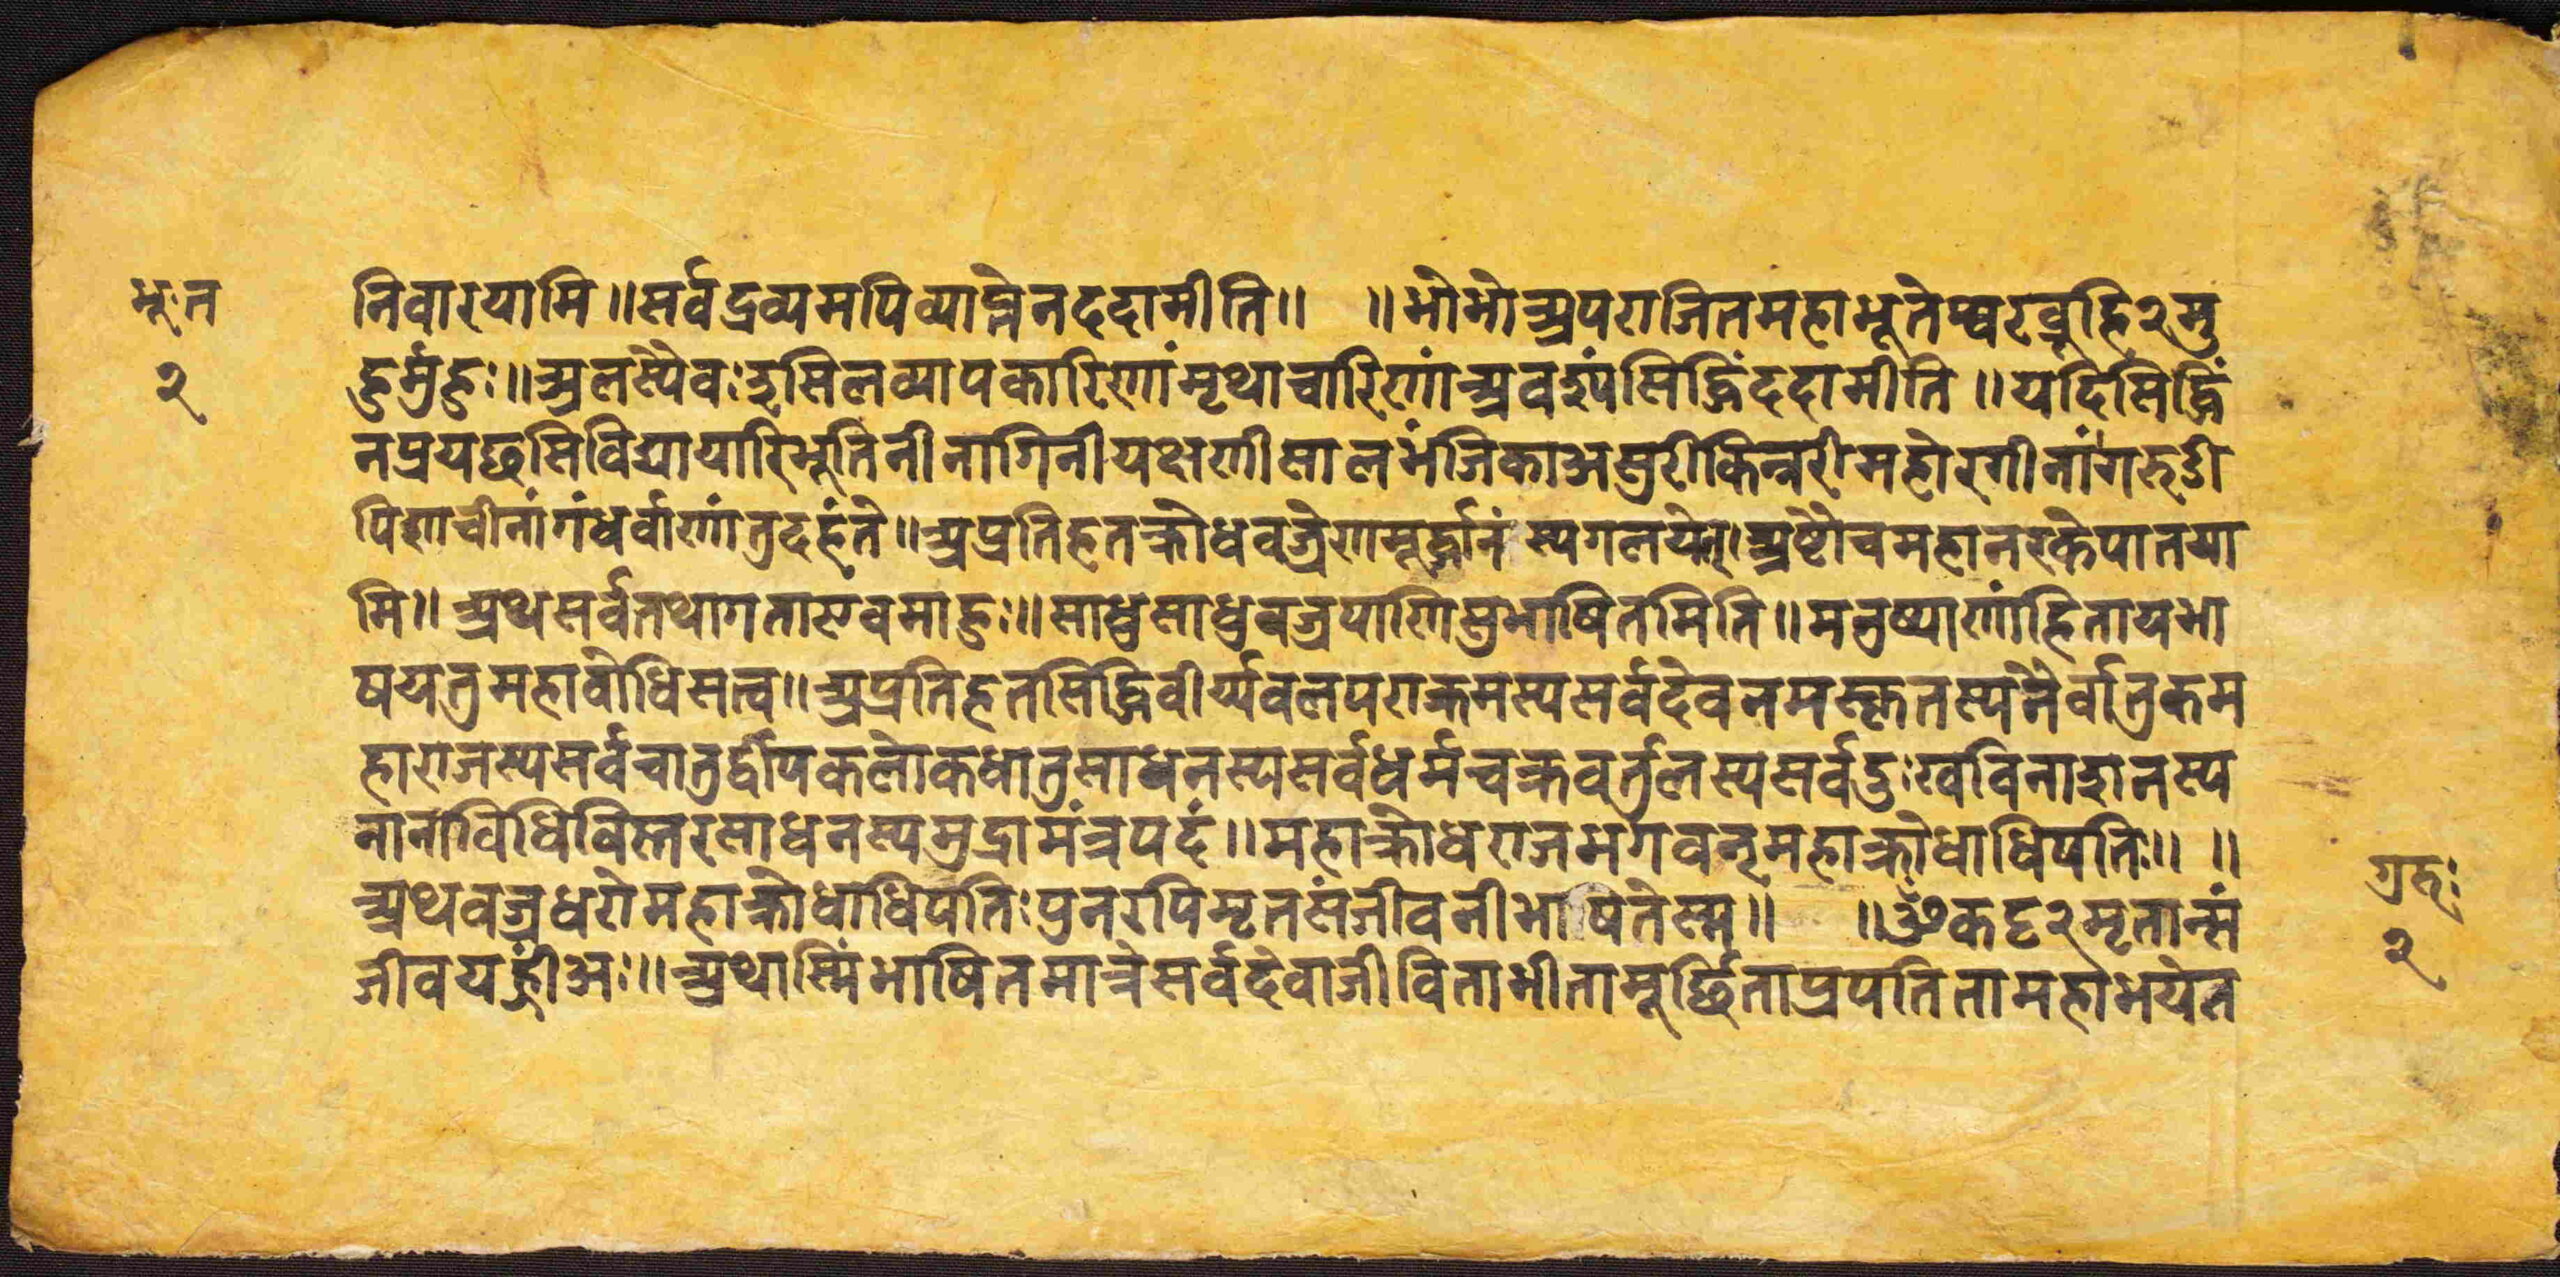 भूःत
२
निवारयामि॥सर्वद्रव्यमपिव्याघ्नेनददामीति॥ ॥भोभोअपराजितमहाभूतेश्वरब्रुहि२मु
हुर्मुहुः॥ कारिणांमृथाचारिणां सिद्धिंददामीति॥यदिसिद्धिं
नप्रयछसिविद्यायारिभूतिनीनागिनीयक्षणीसालभंजिकाअसुरीकिन्नरीमहोरगीनांगरुडी
पिशाचीनांगंधर्वाणांतुदहंते॥अप्रतिहतक्रोधवज्रेणमूर्द्धानंस्यगलयेत्।अष्टौचमहानरकेपातया
मि॥अथसर्वतथागताएवमाहुः॥साधुसाधुवज्रपाणिसुभाषितमिति॥मनुष्याणांहितायभा
षयतुमहावोधिसत्व॥अप्रतिहतसिद्धिवीर्य्यवलपराक्रमस्यसर्वदेवनमस्कृतस्यनैर्वातुकम
हाराजस्यसर्वचातुर्द्वीपकलोकधातुसाधनस्यसर्वधर्मचक्रवर्तुलस्यसर्वदुःखविनाशनस्य
नानाविधिविस्तरसाधनस्यमुद्रामंत्रपदं॥महाक्रोधराजभगवनृमहाक्रोधाधिपतिः॥ ॥
अथवज्रधरोमहाक्रोधाधिपतिःपुनरपिमृतसंजीवनीभाषितेस्म॥ ॥ॐकट्ट२मृतान्सं
जीवयह्रीँअः॥अथास्मिंभाषितमात्रेसर्वदेवाजीविताभीतामूर्छिताप्रपतितामहाभयेन
ग्रहः
२